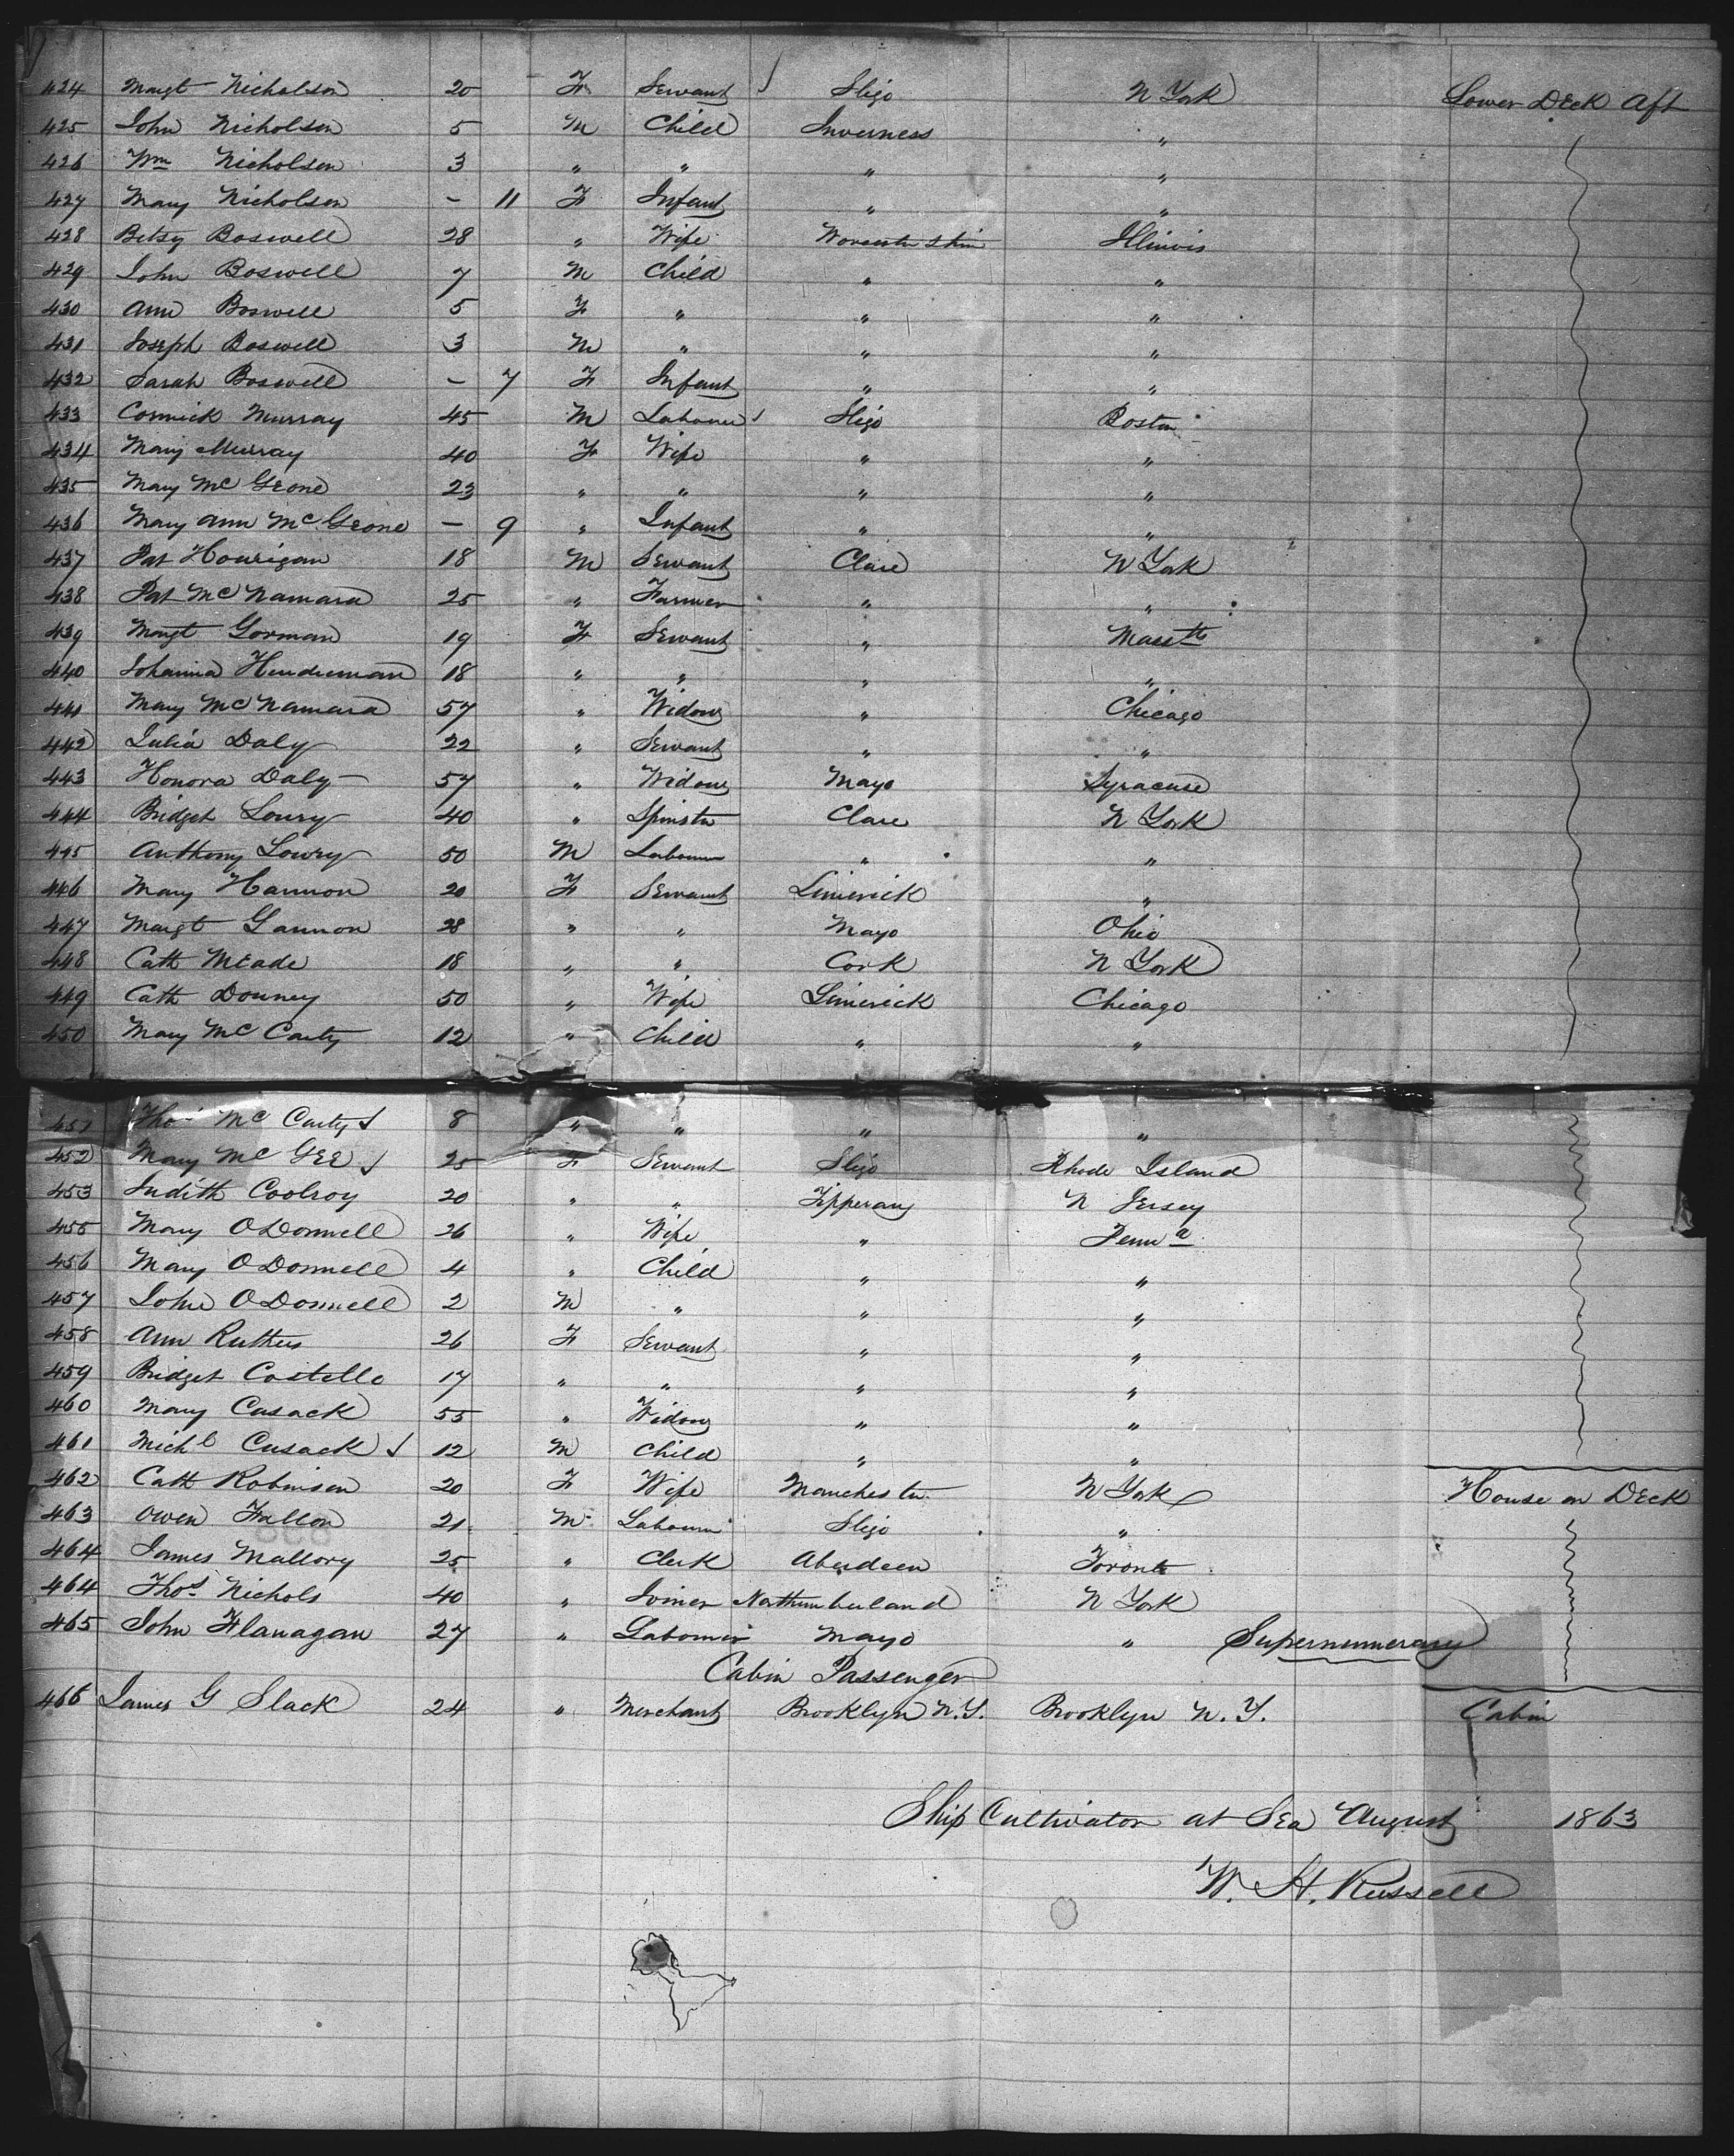 424 Margt Nicholson 20 F Servant Sligo N York Lower Deck Aft
425 John Nicholson 5 M Child Inverness "
426 Wm Nicholson 3 " " " "
427 Mary Nicholson - 11 F Infant " "
428 Betsy Boswell 28 " Wife Worcestershire Illinois
429 John Boswell 7 M Child " "
430 Ann Boswell 5 F " " "
431 Joseph Boswell 3 M " " "
432 Sarah Boswell - 7 F Infant " "
433 Cormick Murray 45 M Labourer Sligo Boston
434 Mary Murray 40 F Wife " "
435 Mary McGeone 23 " " " "
436 Mary Ann McGeone - 9 " Infant " "
437 Pat Hourigan 18 M Servant Clare N York
438 Pat McNamara 25 " Farmer " "
439 Margt Gorman 19 F Servant " Massts
440 Johanna 18 " " " "
441 Mary McNamara 57 " Widow " Chicago
442 Julia Daly 22 " Servant " "
443 Honora Daly 57 " Widow Mayo Syracuse
444 Bridget Lowry 40 " Spinster Clare N York
445 Anthony Lowry 50 M Labourer " "
446 Mary Hannon 20 F Servant Limerick "
447 Margt Gannon 28 " " Mayo Ohio
448 Cath Meade 18 " " Cork N York
449 Cath Downey 50 " Wife Limerick Chicago
450 Mary McCarty 12 " Child " "
451 Thos McCarty 8 " " " "
452 Mary McGee 25 F Servant Sligo Rhode Island
453 Judith Coolroy 20 " " Tipperary N Jersey
455 Mary ODonnell 26 " Wife " Penna
456 Mary ODonnell 4 " Child " "
457 John ODonnell 2 M " " "
458 Ann Ruthers 26 F Servant " "
459 Bridget Costello 17 " " " "
460 Mary Cusack 55 " Widow " "
461 Michl Cusack 12 M Child " "
462 Cath Robinson 20 F Wife Manchester N York House on Deck
463 Owen Fallon 21 M Labourer Sligo "
464 James Mallory 25 " Clerk Aberdeen Toronto
464 Thos Nichols 40 " Joiner Northumberland N York
465 John Flanagan 27 " Labourer Mayo " Supernumerary
Cabin Passenger
466 James G Slack 24 " Merchant Brooklyn N.Y. Brooklyn N.Y. Cabin
Ship Cultivator at Sea August 1863
W. H. Russell